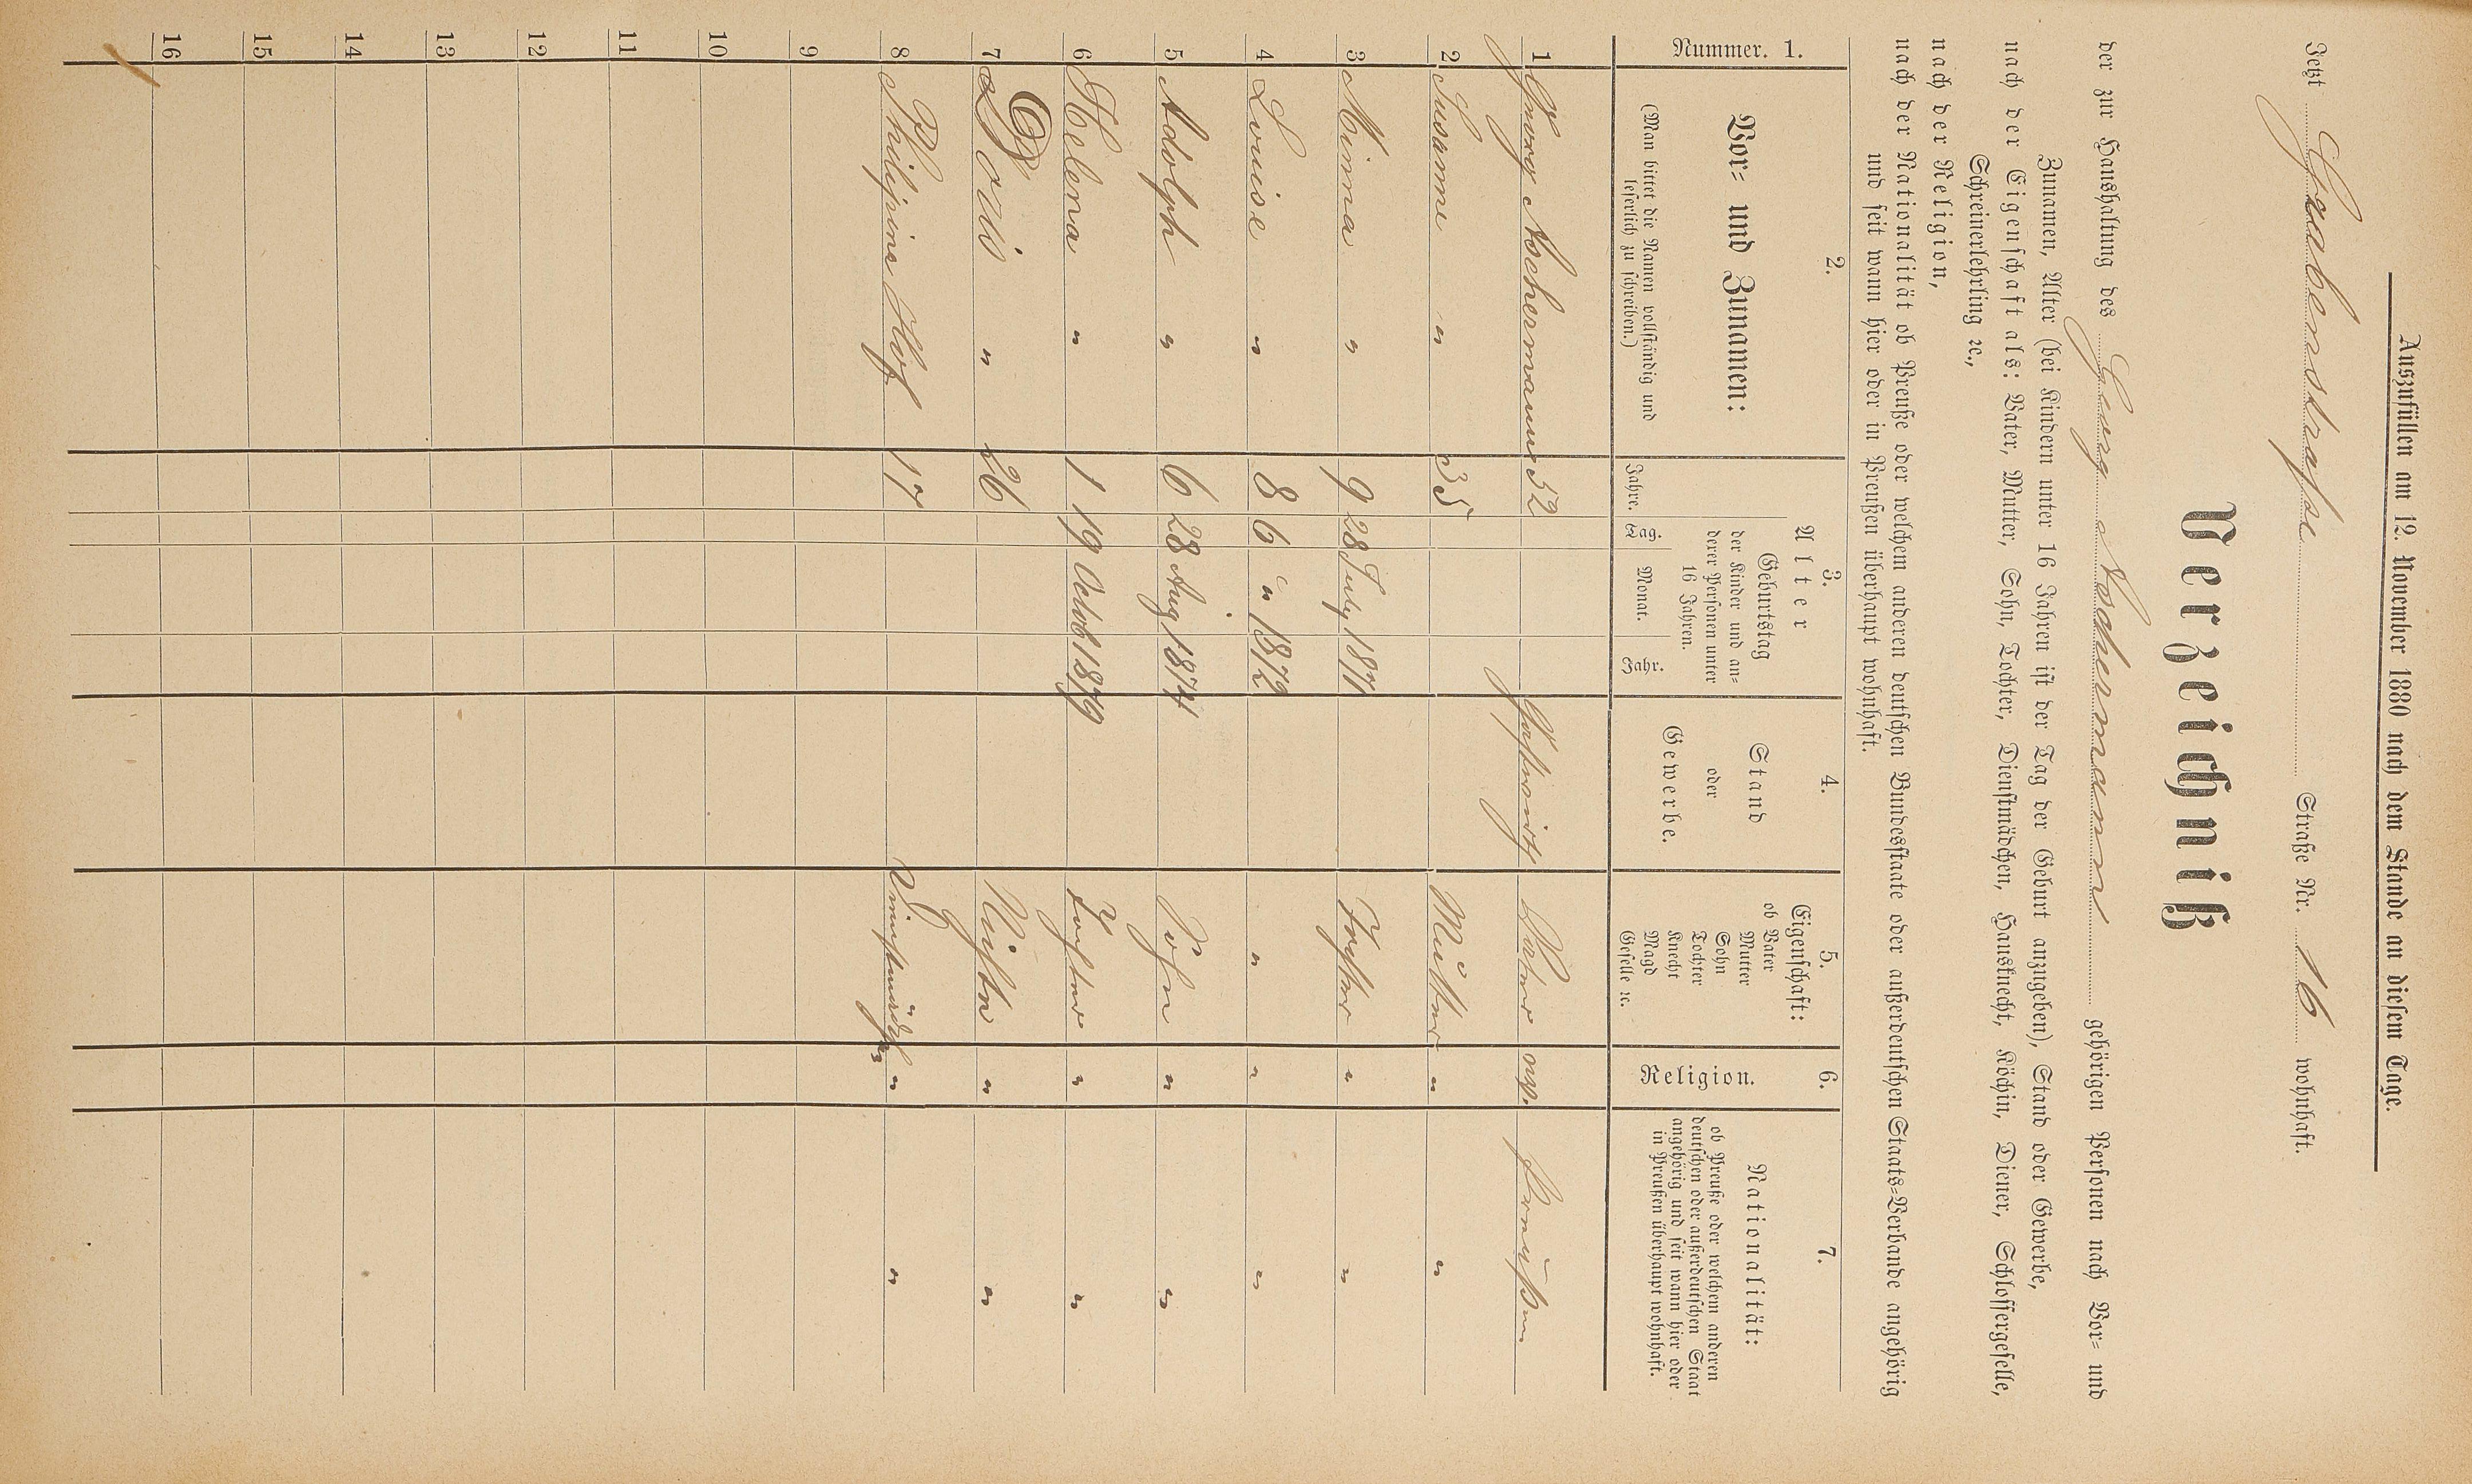 Auszufüllen am 12. November 1880 nach dem Stande an diesem Tage.
Jetzt Grabenstraße Straße Nr. 16 wohnhaft.
Verzeichniß
der zur Haushaltung des Georg Aschermann gehörigen Personen nach Vor- und
Zunamen, Alter (bei Kindern unter 16 Jahren ist der Tag der Geburt anzugeben), Stand oder Gewerbe,
nach der Eigenschaft als: Vater, Mutter, Sohn, Tochter, Dienstmädchen, Hausknecht, Köchin, Diener, Schlossergeselle,
Schreinerlehrling ꝛc.,
nach der Religion,
nach der Nationalität ob Preuße oder welchem anderen deutschen Bundesstaate oder außerdeutschen Staats-Verbande angehörig
und seit wann hier oder in Preußen überhaupt wohnhaft.
Nummer. 1.
2.
Vor- und Zunamen:
(Man bittet die Namen vollständig und
leserlich zu schreiben.)
3.
Alter
Jahre.
Geburtstag
der Kinder und an-
derer Personen unter
16 Jahren.
Tag. Monat. Jahr.
4.
Stand
oder
Gewerbe.
5.
Eigenschaft:
ob Vater
Mutter
Sohn
Tochter
Knecht
Magd
Geselle ꝛc.
6.
Religion.
7.
Nationalität:
ob Preuße oder welchem anderen
deutschen oder außerdeutschen Staat
angehörig und seit wann hier oder
in Preußen überhaupt wohnhaft.
1 Georg Aschermann 52 Gastwirth Vater ev. Preußen
2 Susanne " 35 Mutter " "
3 Minna " 9 28 July 1871 Tochter " "
4 Louise " 8 6 " 1872 " " "
5 Adolph " 6 28 Aug 1874 Sohn " "
6 Helena " 1 19 Octob 1879 Tochter " "
7 " 26 " "
8 Philipine Hof 17 Dienstmädchen " "
9
10
11
12
13
14
15
16